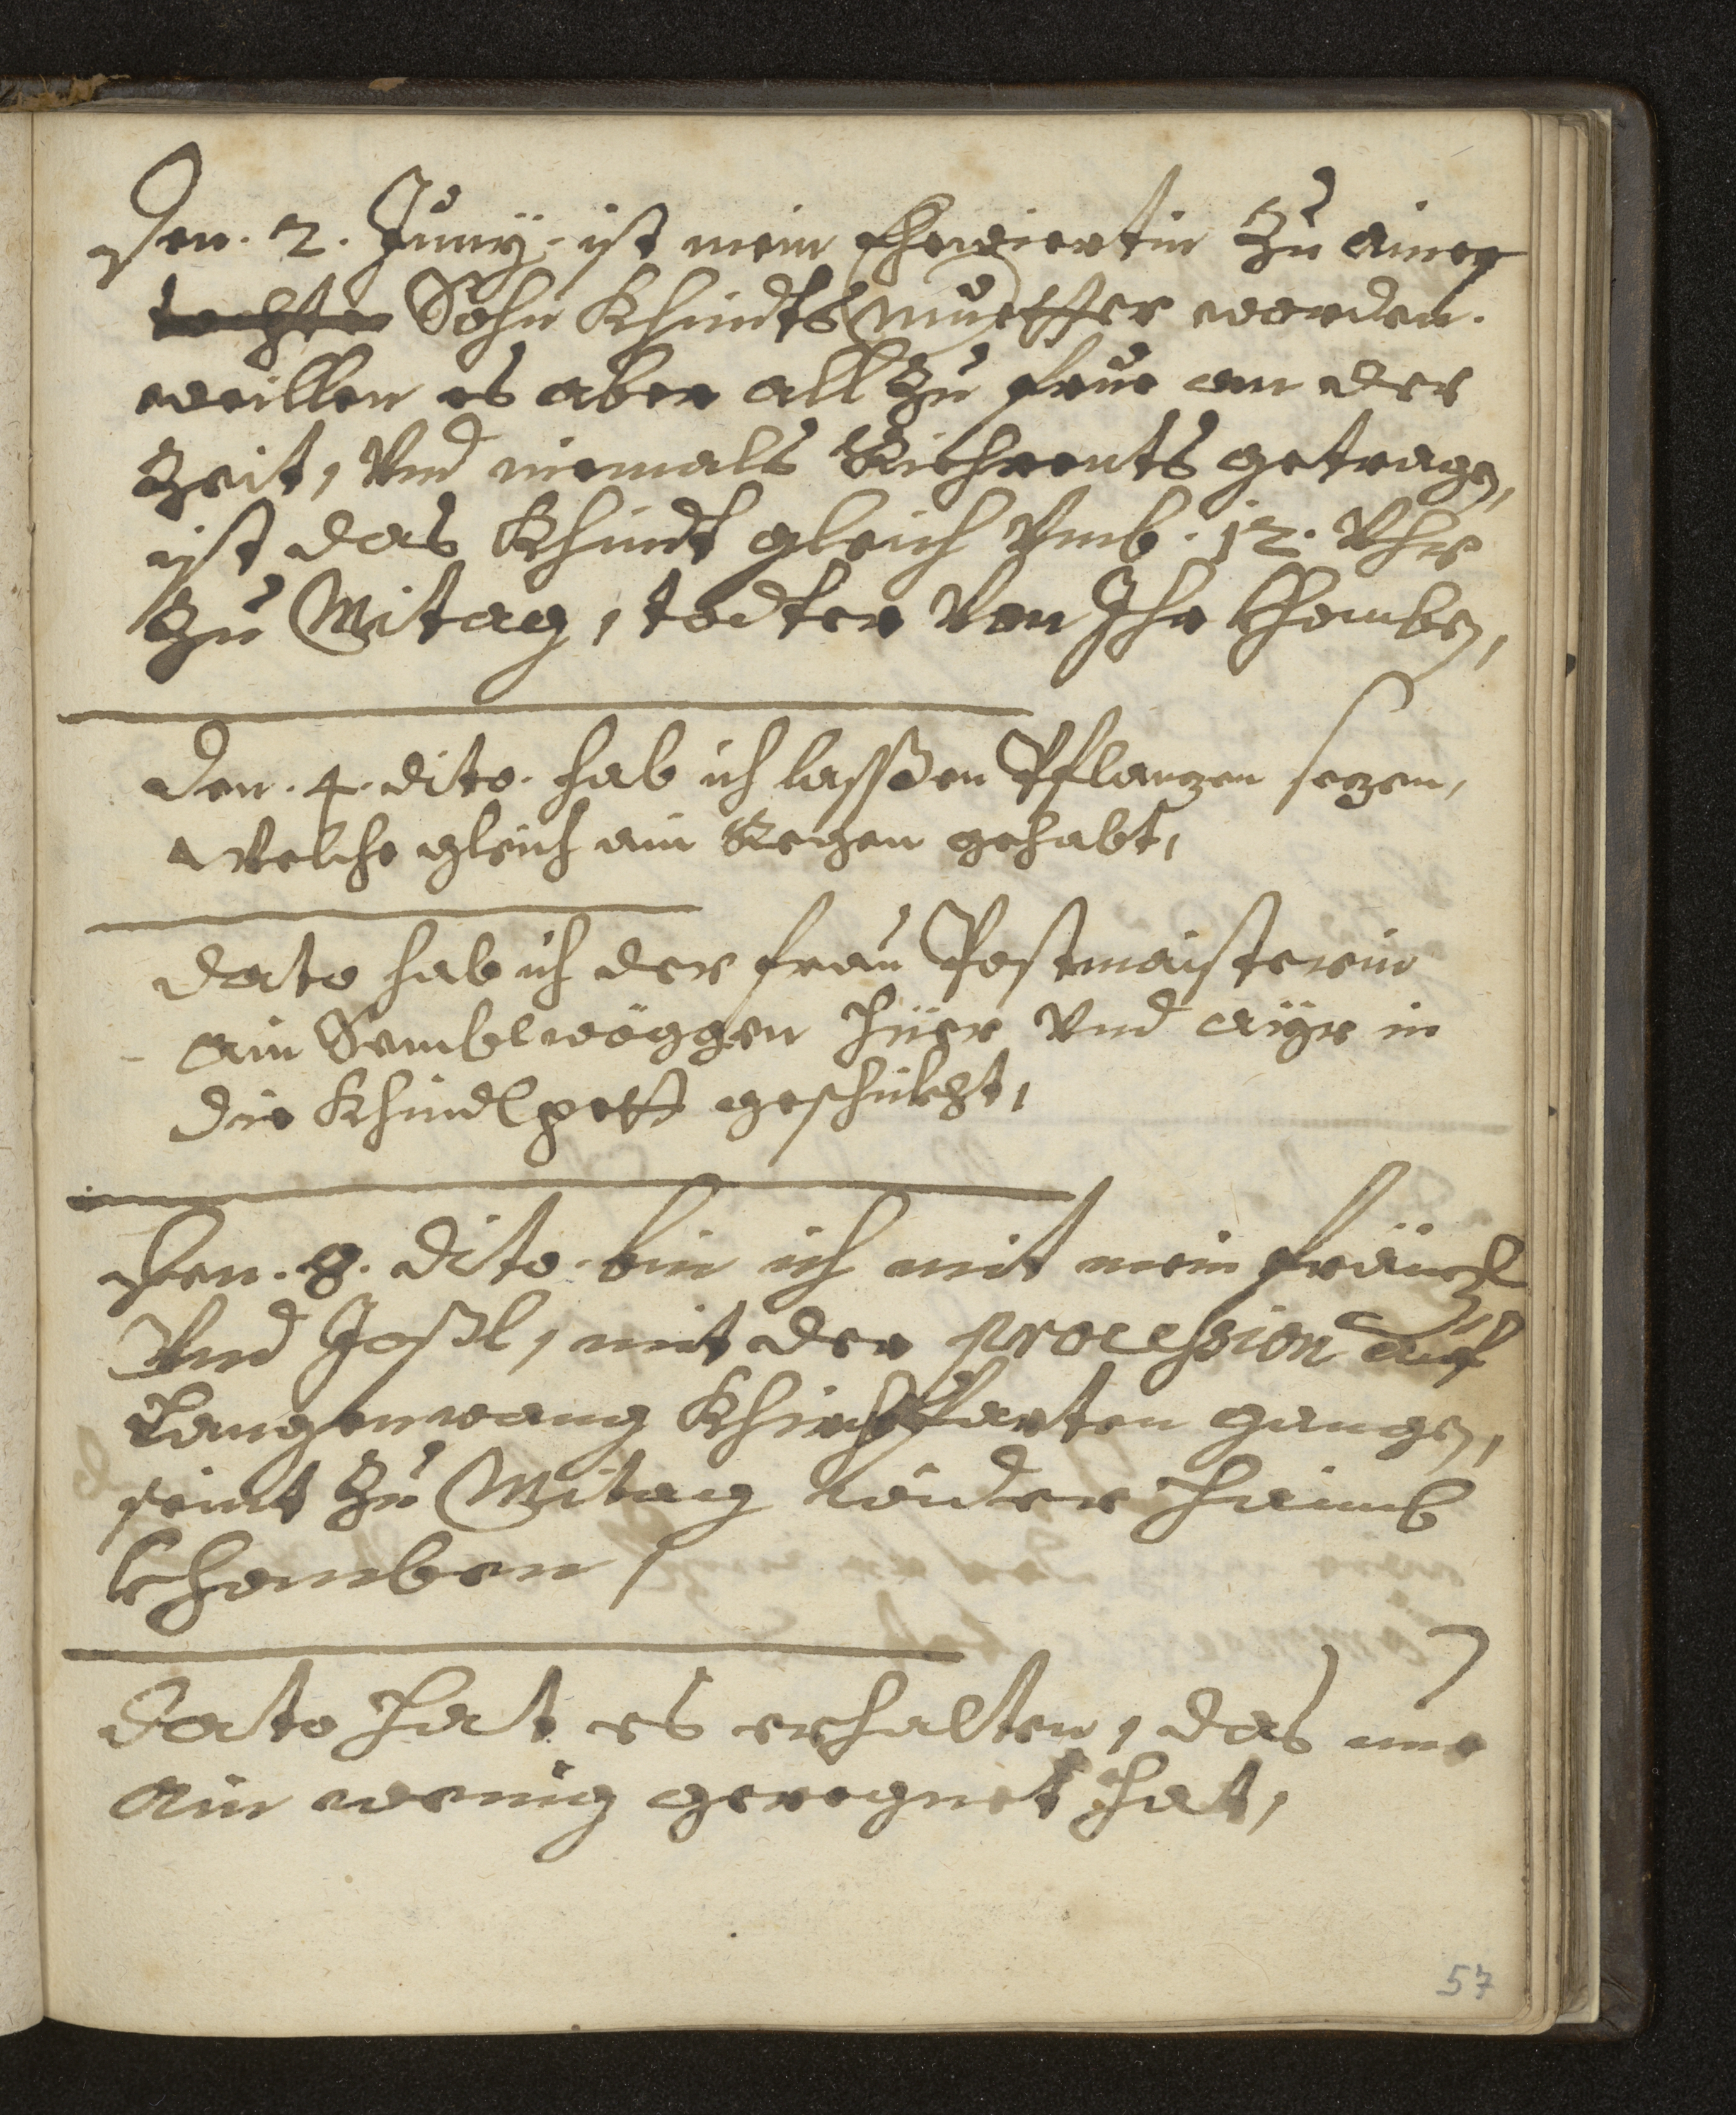 Den. 2. Juny. ist mein Ehewiertin Zu ainer
tochter Sohn Khindts muetter worden.
weillen es aber all Zu frue an der
Zeit, Vnd niemals Riehrents getragen,
ist das Khindt gleich Vmb. 12. Vhr
Zu Mitag, todter Von Ihr Khomben,
Den. 4. dito. hab ich lassßen Pflanzen sezen,
Welche gleich ain Regen gehabt,
Dato hab ich der frau Postmaisterin
ain Sembelwöggen Hüer Vnd ayr in
die Khindlpett geschickht,
Den. 8. dito. bin ich mit mein fränzl
Vnd Joßl, mit der procession auf
Langenwang Khirchfarten gangen,
seint Zu Mitag wider Haimb
Khomben,
Dato Hat es erhalten, das nur
ain wenig geregnet Hat,
57